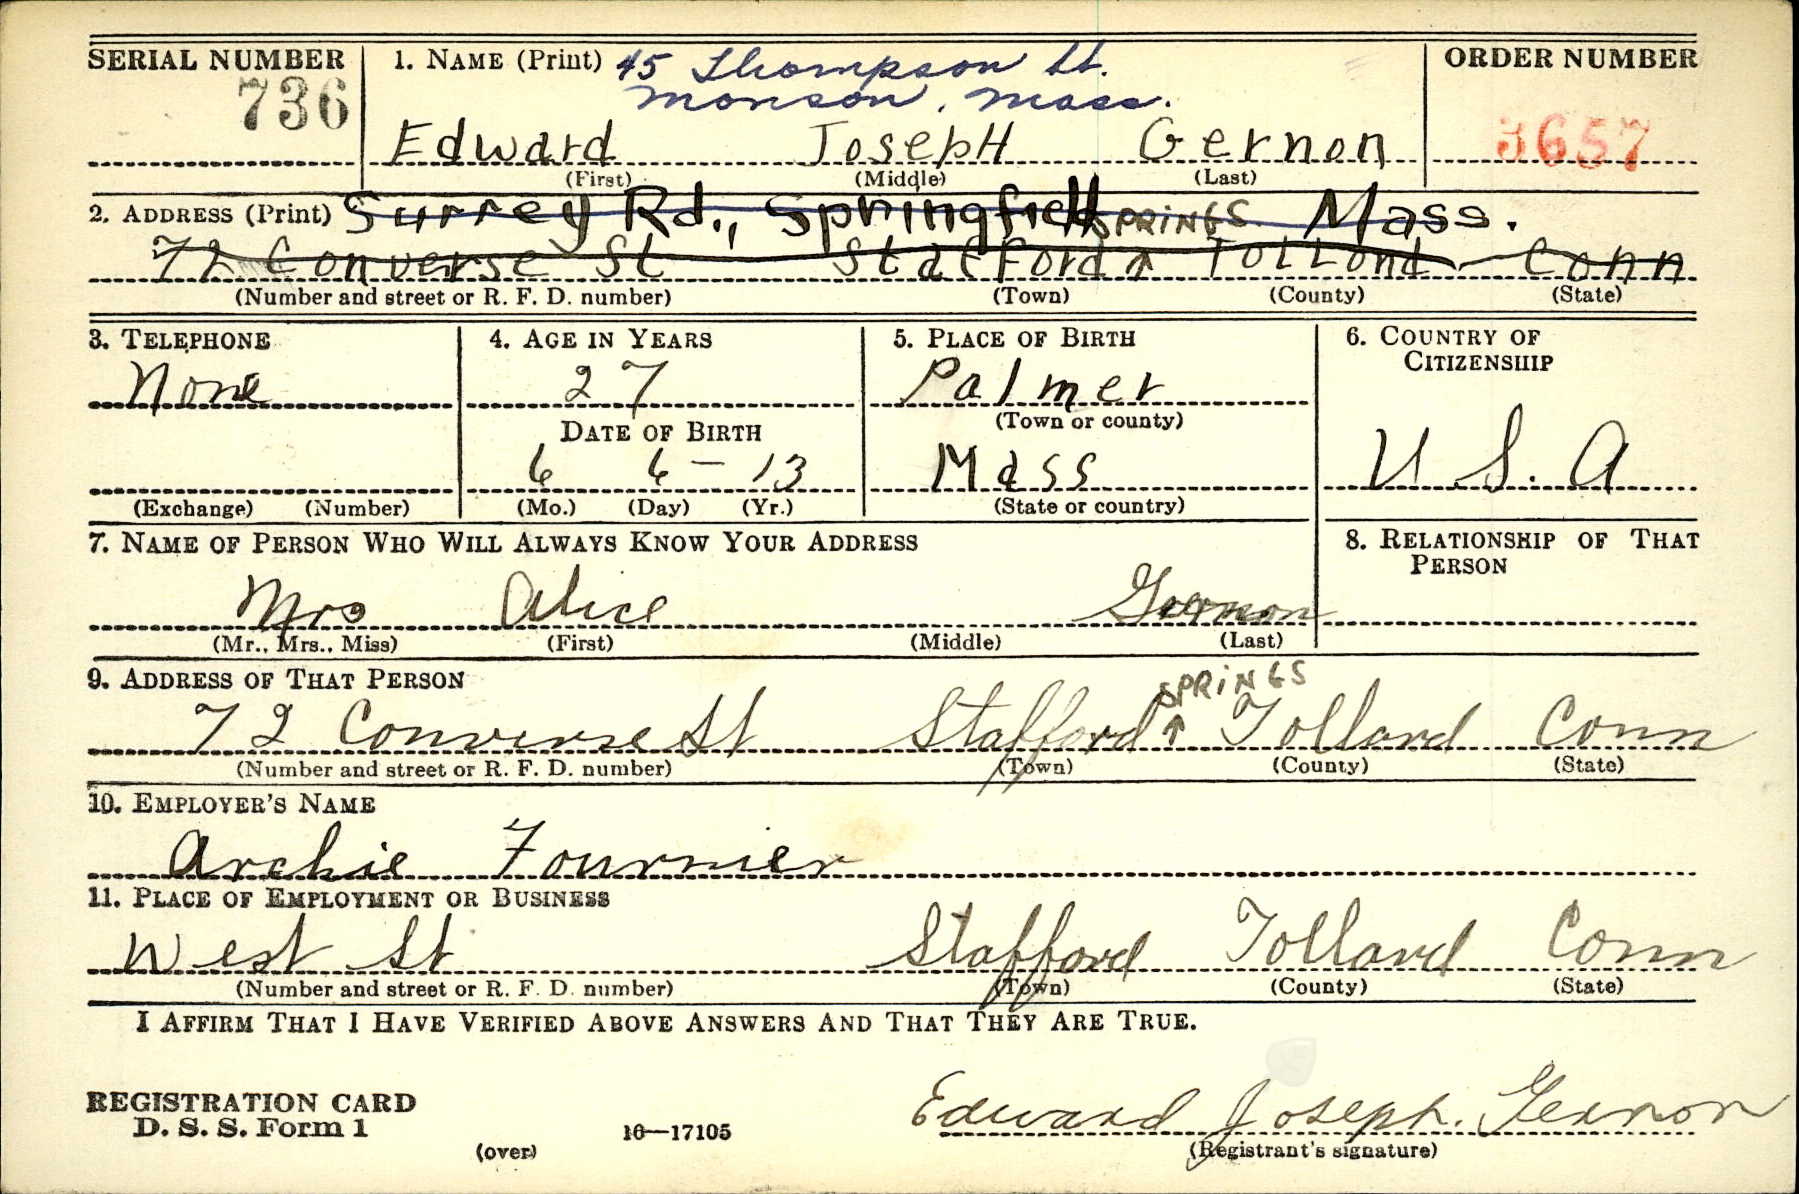 SERIAL NUMBER 1. NAME (Print) 45 Thompson St. ORDER NUMBER
736 Monson, Mass.
Edward Joseph Gernon 3657
(First) (Middle) (Last)
2. ADDRESS (Print) Surrey Rd., Springfield Mass.
SPRINGS
72 Converse St Stafford ↑ Tolland Conn
(Number and street or R. F. D. number) (Town) (County) (State)
3. TELEPHONE 4. AGE IN YEARS 5. PLACE OF BIRTH 6. COUNTRY OF
CITIZENSHIP
None 27 Palmer
(Town or county)
DATE OF BIRTH
6 6 - 13 Mass U. S. A
(Exchange) (Number) (Mo.) (Day) (Yr.) (State or country)
7. NAME OF PERSON WHO WILL ALWAYS KNOW YOUR ADDRESS 8. RELATIONSHIP OF THAT
PERSON
Mrs Alice Gernon
(Mr., Mrs., Miss) (First) (Middle) (Last)
9. ADDRESS OF THAT PERSON
SPRINGS
72 Converse St Stafford ↑ Tolland Conn
(Number and street or R. F. D. number) (Town) (County) (State)
10. EMPLOYER'S NAME
Archie Fournier
11. PLACE OF EMPLOYMENT OR BUSINESS
West St Stafford Tolland Conn
(Number and street or R. F. D. number) (Town) (County) (State)
I AFFIRM THAT I HAVE VERIFIED ABOVE ANSWERS AND THAT THEY ARE TRUE.
REGISTRATION CARD
D. S. S. Form 1 16—17105 Edward Joseph. Gernon
(over) (Registrant's signature)